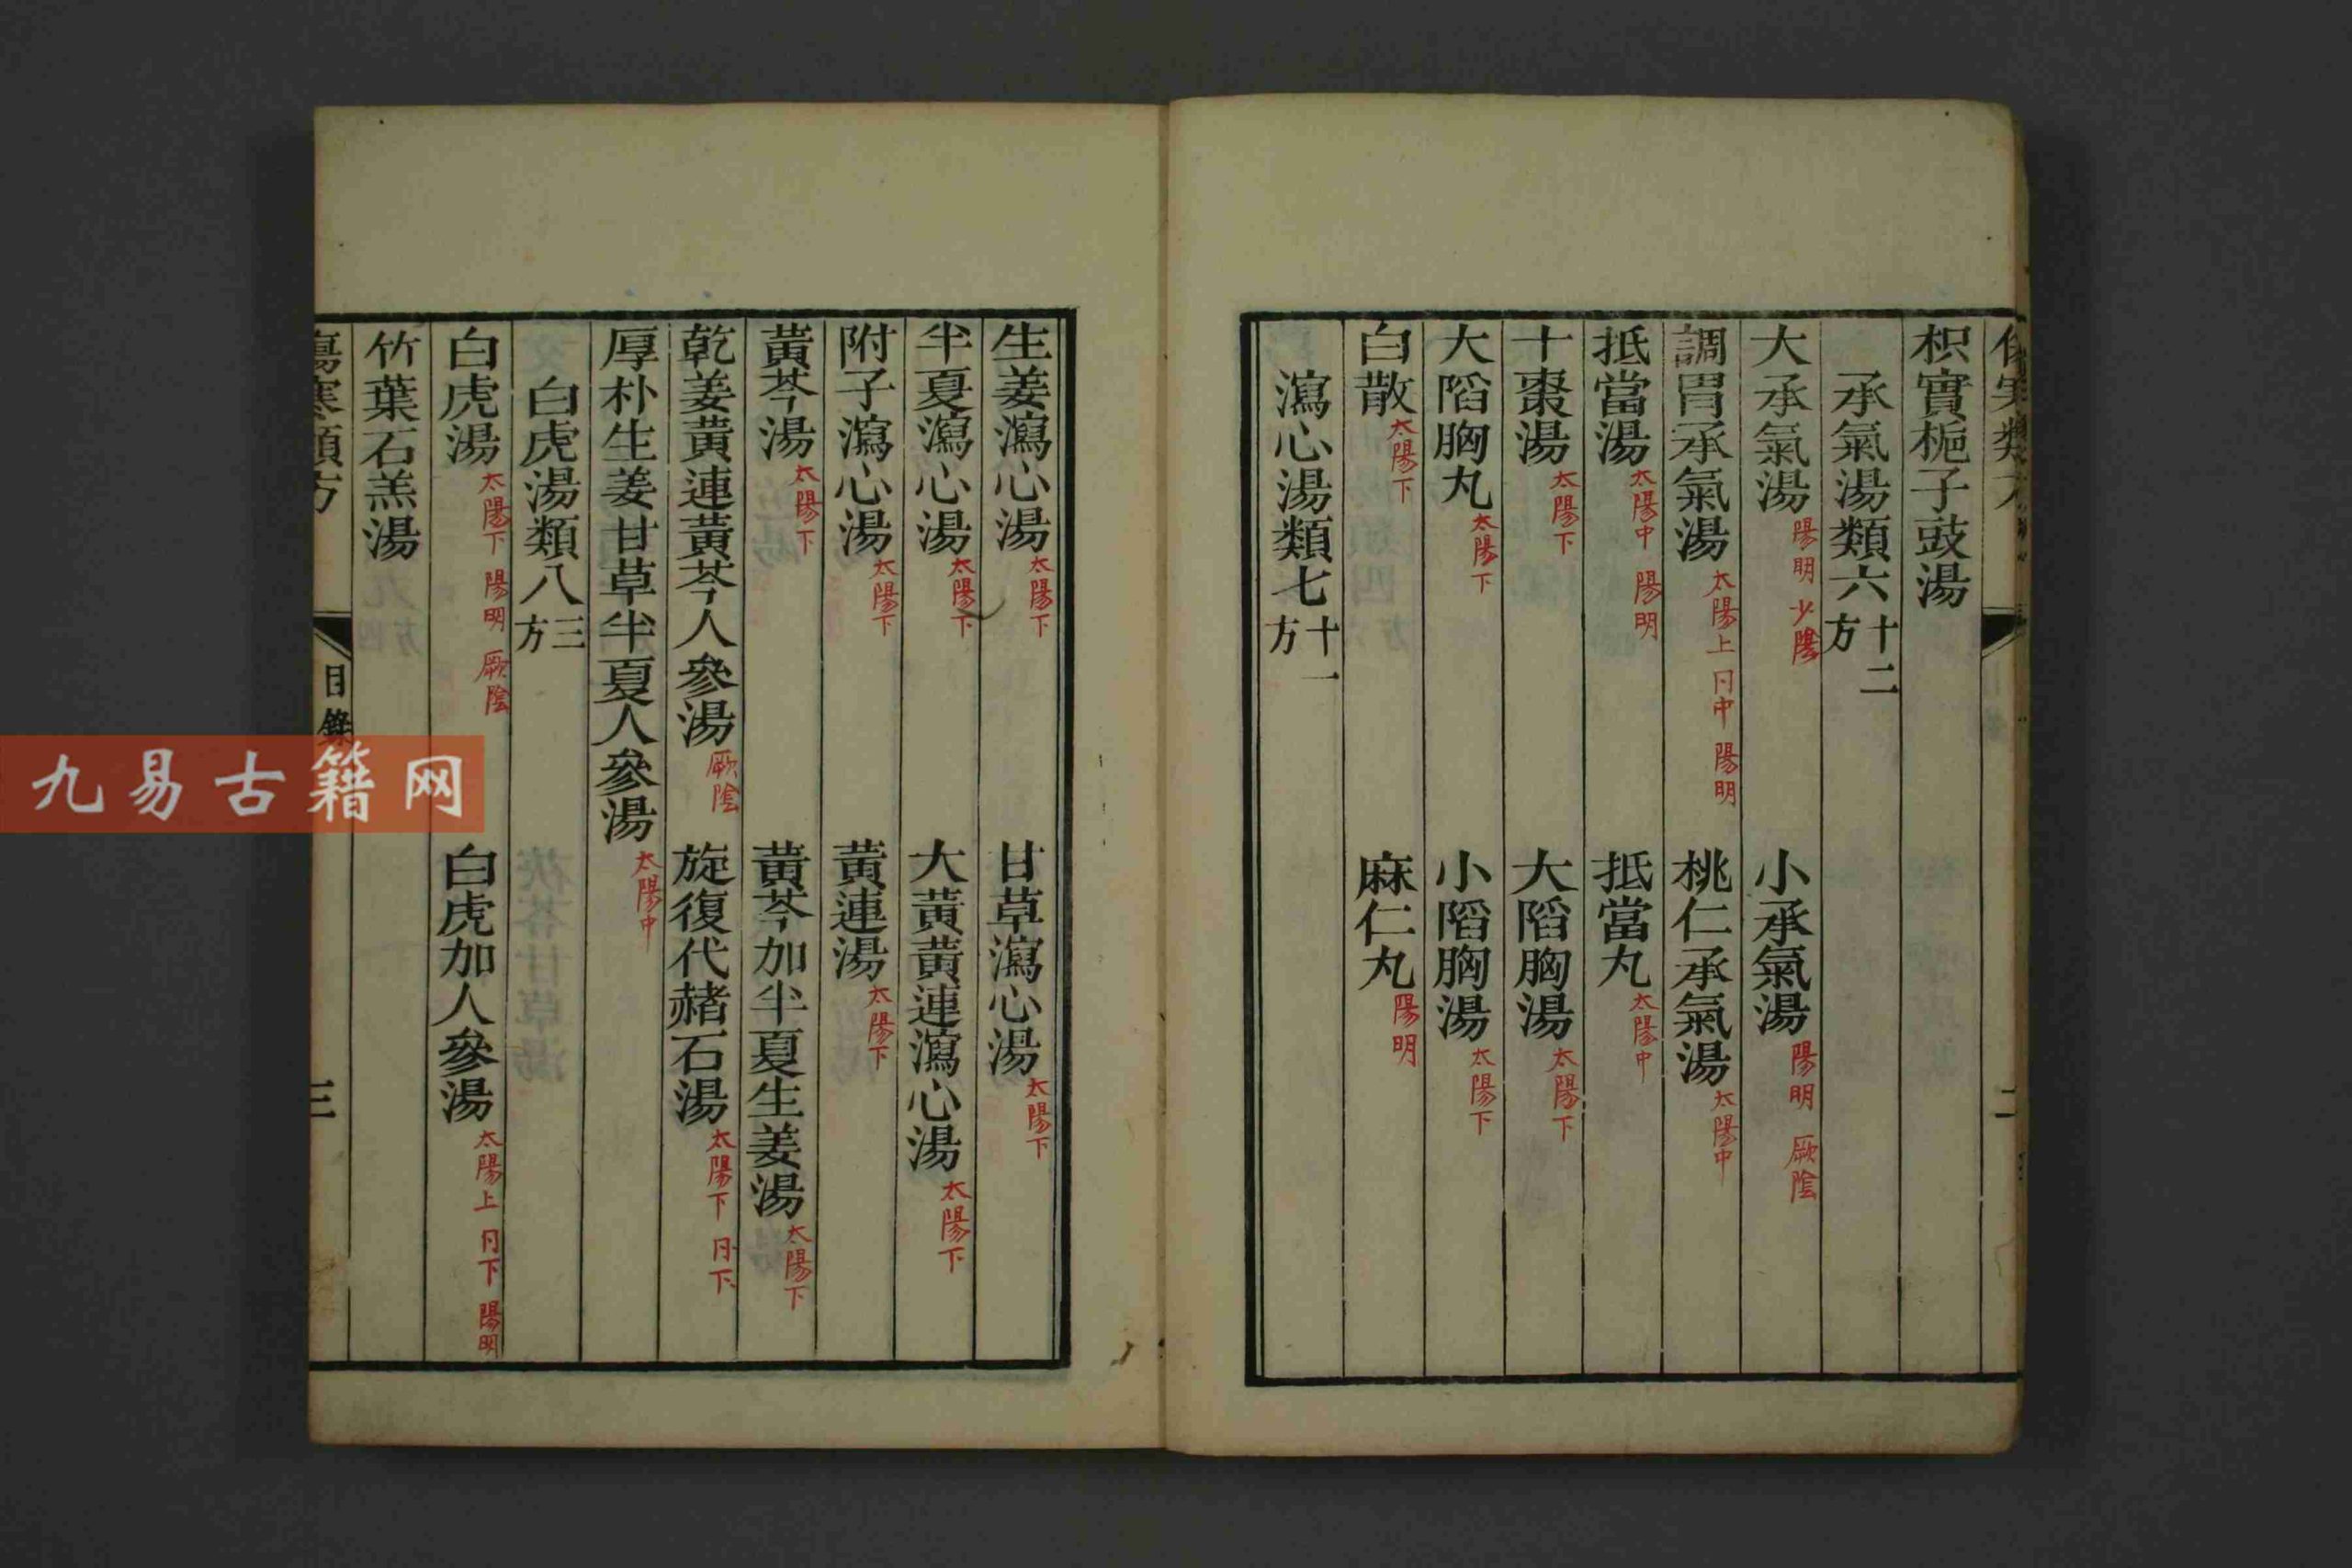 傷寒類方
二
枳實梔子豉湯
承氣湯類六 十二方
大承氣湯 陽明 少陰 小承氣湯 陽明 厥陰
調胃承氣湯 太陽上 仝中 陽明 桃仁承氣湯 太陽中
抵當湯 太陽中 陽明 抵當丸 太陽中
十棗湯 太陽下 大陷胸湯 太陽下
大陷胸丸 太陽下 小陷胸湯 太陽下
白散 太陽下 麻仁丸 陽明
瀉心湯類七 十一方
生姜瀉心湯 太陽下 甘草瀉心湯 太陽下
半夏瀉心湯 太陽下 大黃黃連瀉心湯 太陽下
附子瀉心湯 太陽下 黃連湯 太陽下
黃芩湯 太陽下 黃芩加半夏生姜湯 太陽下
乾姜黃連黃芩人參湯 厥陰 旋復代赭石湯 太陽下 仝下
厚朴生姜甘草半夏人參湯 太陽中
白虎湯類八 三方
白虎湯 太陽下 陽明 厥陰 白虎加人參湯 太陽上 仝下 陽明
竹葉石羔湯
傷寒類方 目錄 三
九易古籍网